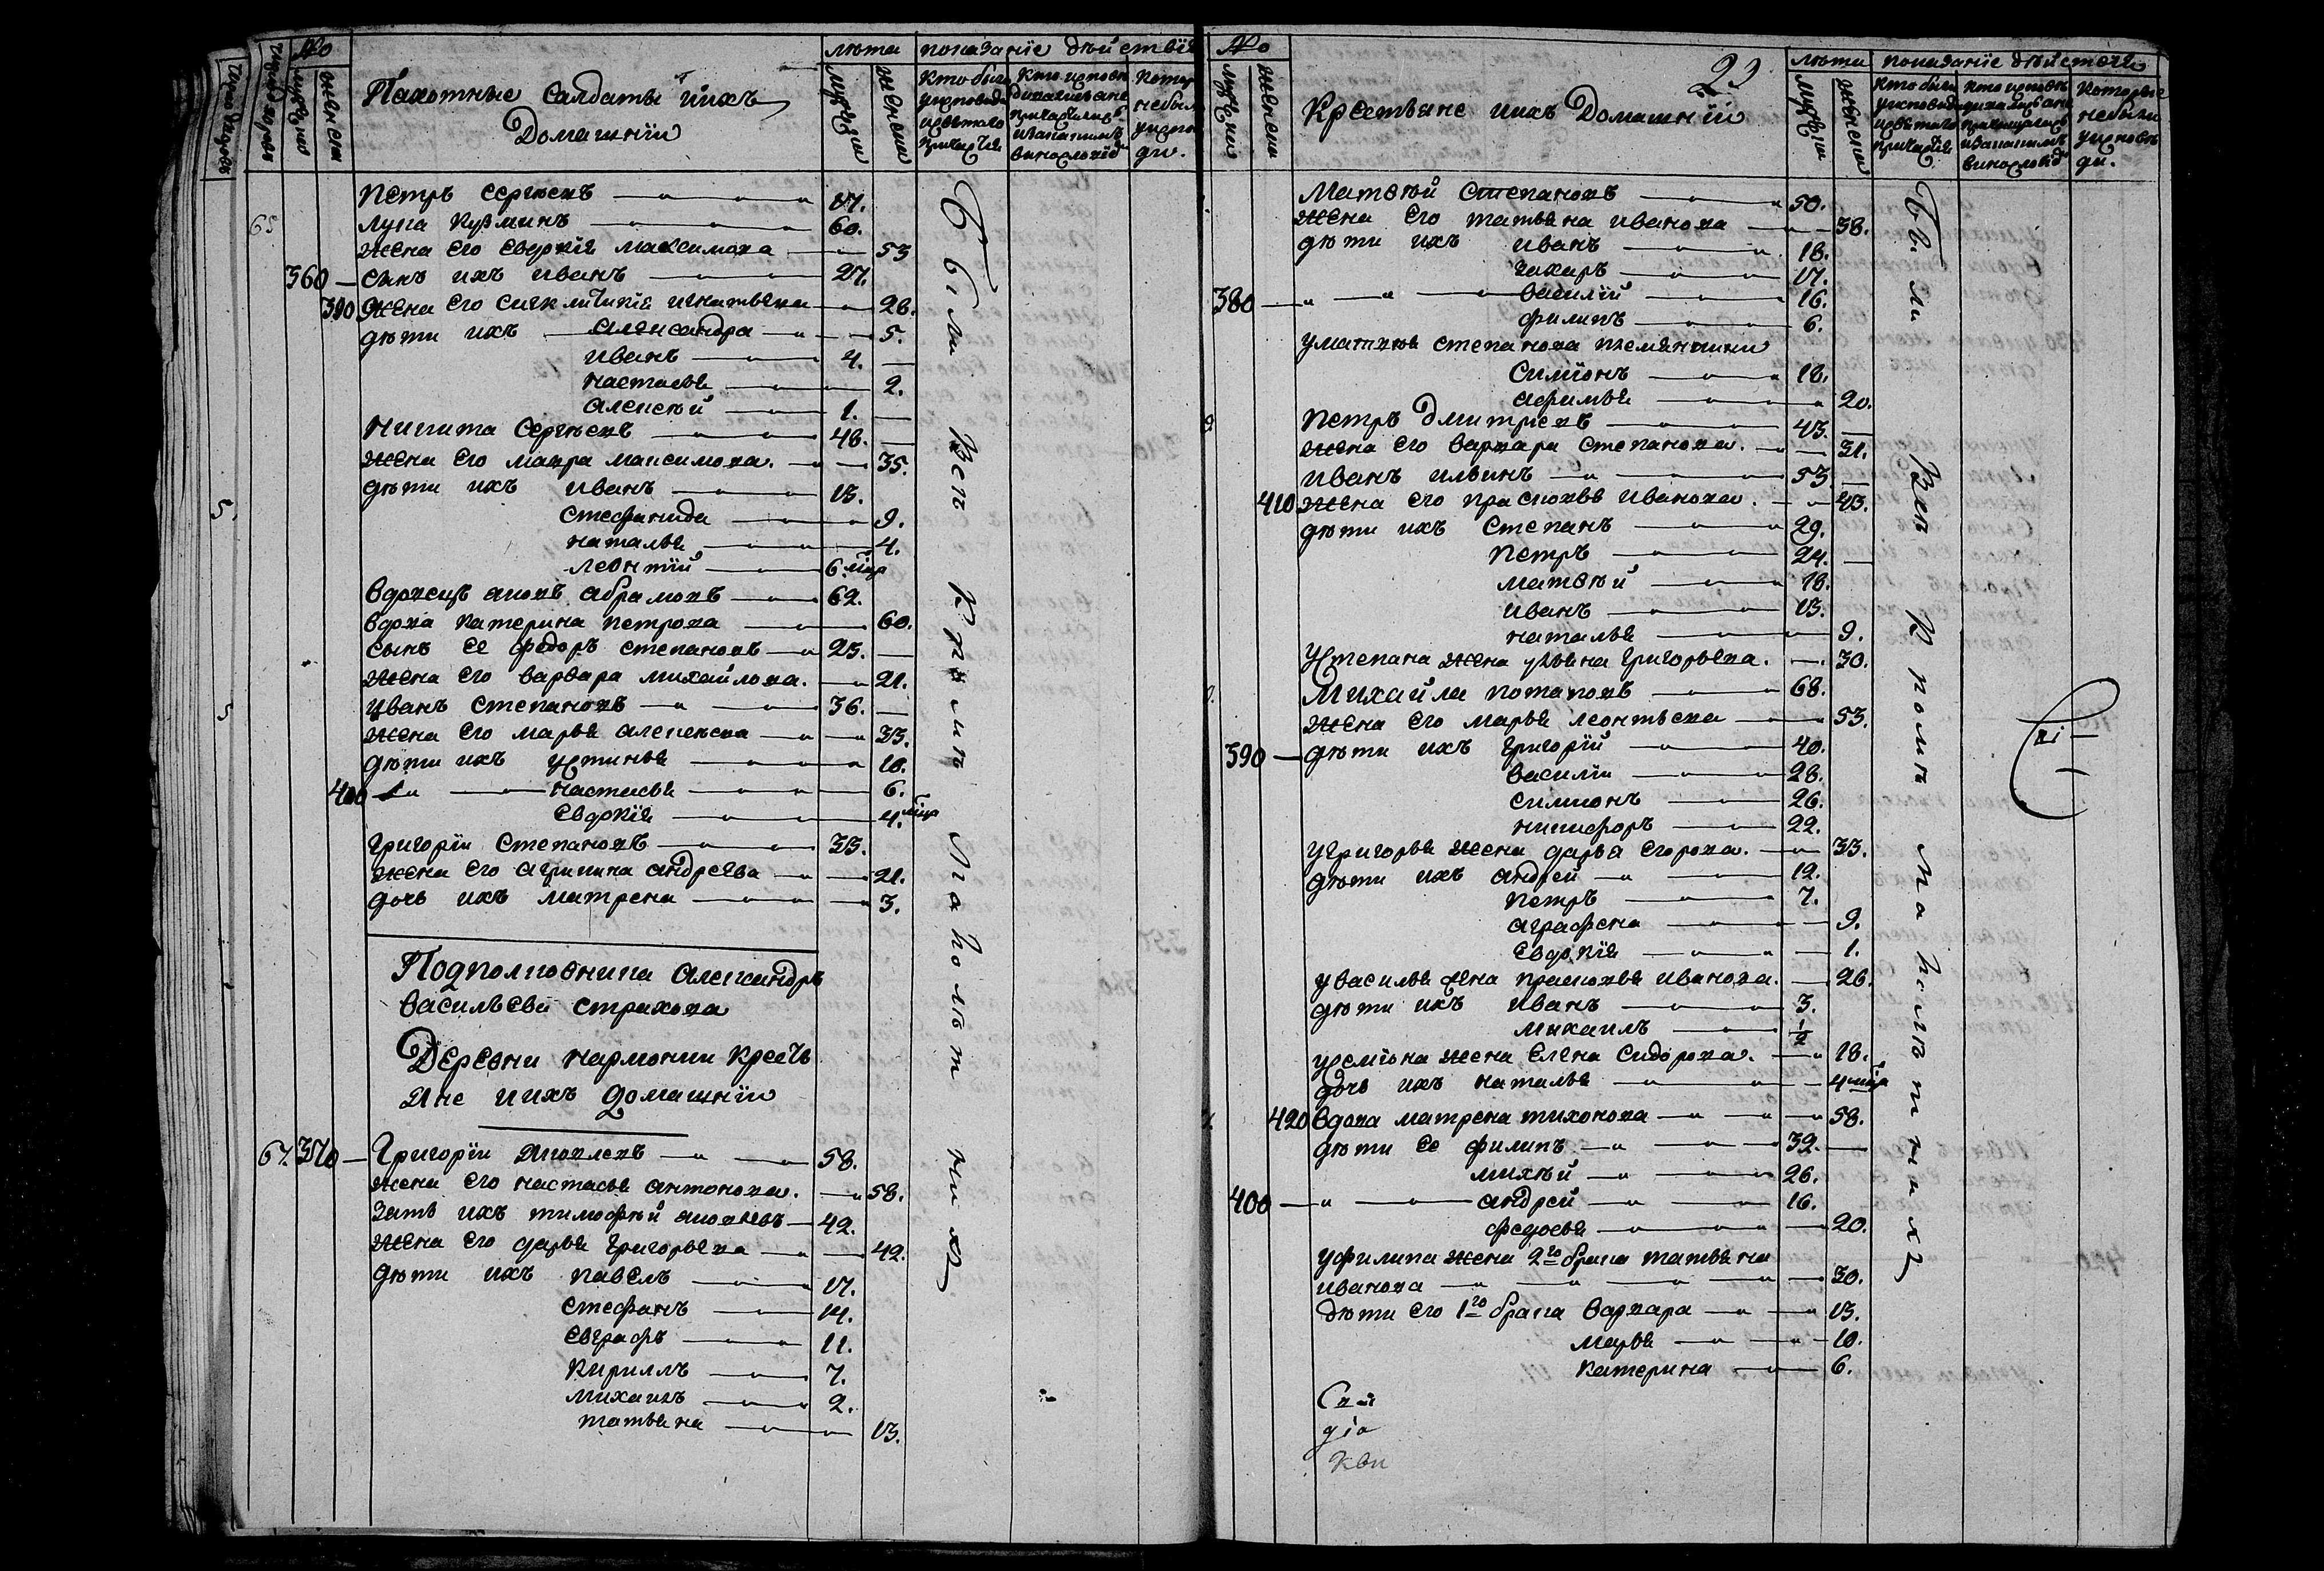 №
Число дворовъ
мужеска
женска
Пахотные Салдаты и ихъ
Домашнiи
лѣта
мужеска
женска
показанiе дѣйствiя
Кто были
у исповѣди
и святаго
причастiя
Кто исповѣ
дыхались а не
причастились
и за каким
винословiемъ
Которые
не были
у исповѣ
ди.
Петръ Сергѣевъ 17.
65 Лупа Кузминъ 60.
жена его Евдокiя Максимова 53
360 — Сынъ ихъ Иванъ 27.
390 Жена его Сигклитикiя Игнатьева 26.
дѣти ихъ Александра 5.
Иванъ 4.
Настасья 2.
Алексѣй 1.
Никита Сергѣевъ 48.
жена его Мавра Максимова. 35.
дѣти ихъ Иванъ 13.
Стефанида 9.
Наталья 4.
Леонтiй 6. мца
вдовецъ Аковъ Абрамовъ 62.
вдова Катерина Петрова 60.
Сынъ ее Федоръ Степановъ 23.
жена его Варвара Михайлова. 21.
Иванъ Степановъ 36.
жена его Марья Алексѣева 33.
дѣти ихъ Устинья 10.
400 Настасья 6.
Евдокiя 4. мца
Григорiи Степановъ 33.
жена его Агрипина Андреева 21.
дочь ихъ Матрена 3.
Подполковника Александръ
Васильева Страхова
Деревни Кармонки Кресть
Яне и ихъ домашнiи
67. 370 — Григорiи Яковлевъ 58.
жена его Настасья Антонова. 58.
Зять ихъ Тимофѣй Яковлевъ 42.
жена его Дарья Григорьева 42.
дѣти ихъ Павелъ 17.
Стефанъ 14.
Евграфъ 11.
Кириллъ 7.
Михаилъ 2.
Татьяна 13.
Были Всѣ Кромѣ Малолѣтнихъ
№
мужеска
женска
Крестьяне и ихъ Домашнiи
22
лѣта
мужеска
женска
показанiе дѣйствiя
Кто были
у исповѣди
и святаго
причастiя
Кто исповѣ
дыхались а не
причастились
и за каким
винословiемъ
Которые
не были
у исповѣ
ди.
Матвѣй Степановъ 50.
жена Его Татьяна Иванова 38.
дѣти ихъ Иванъ 18.
Захаръ 17.
380 — Василiй 16.
Филипъ 6.
у Матвѣя Степанова племянники
Симiонъ 18.
Афимья 20.
Петръ Дмитрiевъ 43.
жена его Варвара Степанова. 31.
Иванъ Ильинъ 53.
410 жена его Прасковья Иванова. 43.
дѣти ихъ Степанъ 29.
Петръ 24.
Матвѣй 18.
Иванъ 13.
Наталья 9.
У Степана жена Ульяна Григорьева. 30.
Михайла Потаповъ 68.
жена Его Марья Леонтьева 53.
390 — дѣти ихъ Григорiй 40.
Василiи 28.
Симионъ 26.
Никифоръ 22.
у Григорья жена Дарья Егорова. 33.
дѣти ихъ Андрей 12.
Петръ 7.
Аграфена 9.
Евдокiя 1.
у Василья жена Прасковья Иванова. 26.
дѣти ихъ Иванъ 3.
Михаилъ 1/2
у Семiона жена Елена Сидорова. 18.
дочь ихъ Наталья 4 мца
420 вдова Матрена Тихонова 58.
дѣти ее Филипъ 32.
Михѣй 26.
400 — Андрей 16.
Федосья 20.
у Филипа жена 2го брака Татьяна
Иванова 30.
дѣти его 1го брака Варвара 13.
Марья 10.
Катерина 6.
Были Всѣ Кромѣ Малолѣтнихъ